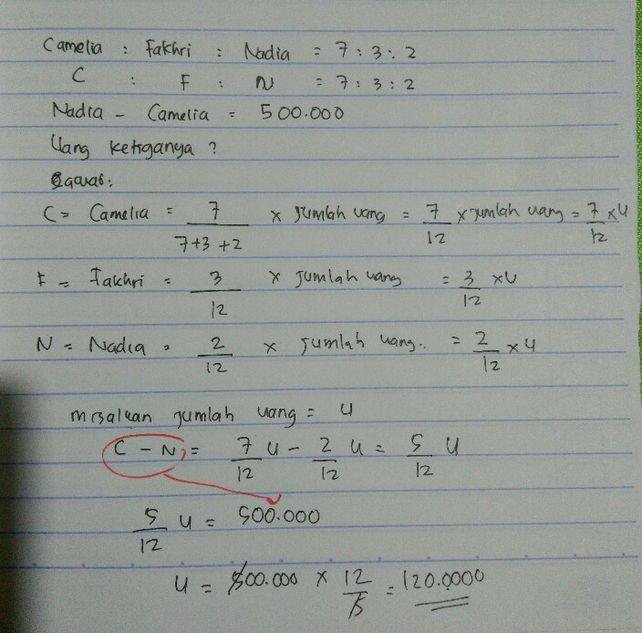 Camelia : Fakhri : Nadia = 7 : 3 : 2
C : F : N = 7 : 3 : 2
Nadia - Camelia = 500.000
Uang ketiganya ?
Jawab:
C = Camelia = 7/7+3+2 x jumlah uang = 7/12 x jumlah uang = 7/12 x u
F = Fakhri = 3/12 x jumlah uang = 3/12 x u
N = Nadia = 2/12 x jumlah uang.. = 2/12 x u
misalkan jumlah uang = u
C - N = 7/12 u - 2/12 u = 5/12 u
5/12 u = 500.000
u = 500.000 x 12/5 = 120.0000